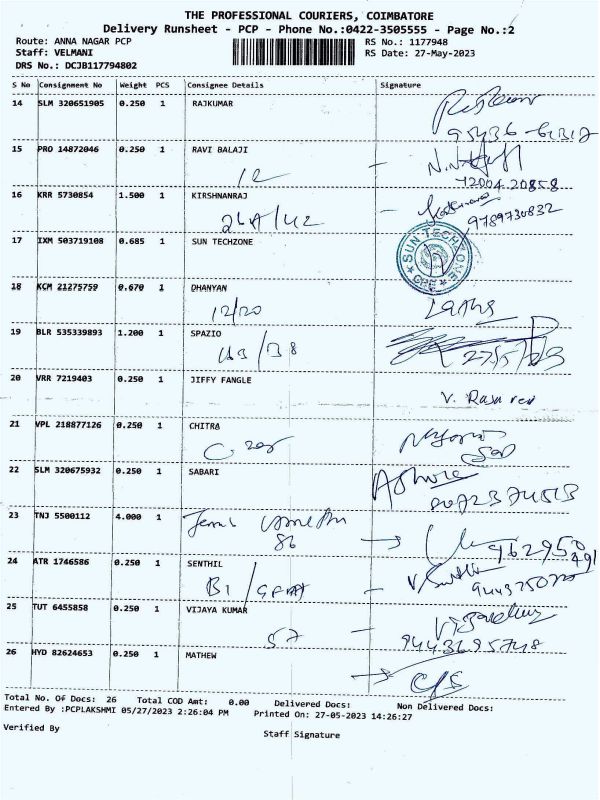 THE PROFESSIONAL COURIERS, COIMBATORE
Delivery Runsheet - PCP - Phone No.:0422-3505555 - Page No.:2
Route: ANNA NAGAR PCP RS No.: 1177948
Staff: VELMANI RS Date: 27-May-2023
DRS No.: DCJB117794802
S No Consignment No Weight PCS Consignee Details Signature
14 SLM 320651905 0.250 1 RAJKUMAR
15 PRO 14872046 0.250 1 RAVI BALAJI
12 72004 20858
16 KRR 5730854 1.500 1 KIRSHNANRAJ
26A/42 9789730832
17 IXM 503719108 0.685 1 SUN TECHZONE
SUN TECH ZONE
18 KCM 21275759 0.670 1 DHANYAN
12/20 Latha
19 BLR 535339893 1.200 1 SPAZIO
27/5/23
20 VRR 7219403 0.250 1 JIFFY FANGLE
21 VPL 218877126 0.250 1 CHITRA
22 SLM 320675932 0.250 1 SABARI
23 TNJ 5500112 4.000 1
86
24 ATR 1746586 0.250 1 SENTHIL
B1
25 TUT 6455858 0.250 1 VIJAYA KUMAR
57 9443695748
26 HYD 82624653 0.250 1 MATHEW
Total No. Of Docs: 26 Total COD Amt: 0.00 Delivered Docs: Non Delivered Docs:
Entered By :PCPLAKSHMI 05/27/2023 2:26:04 PM Printed On: 27-05-2023 14:26:27
Verified By
Staff Signature